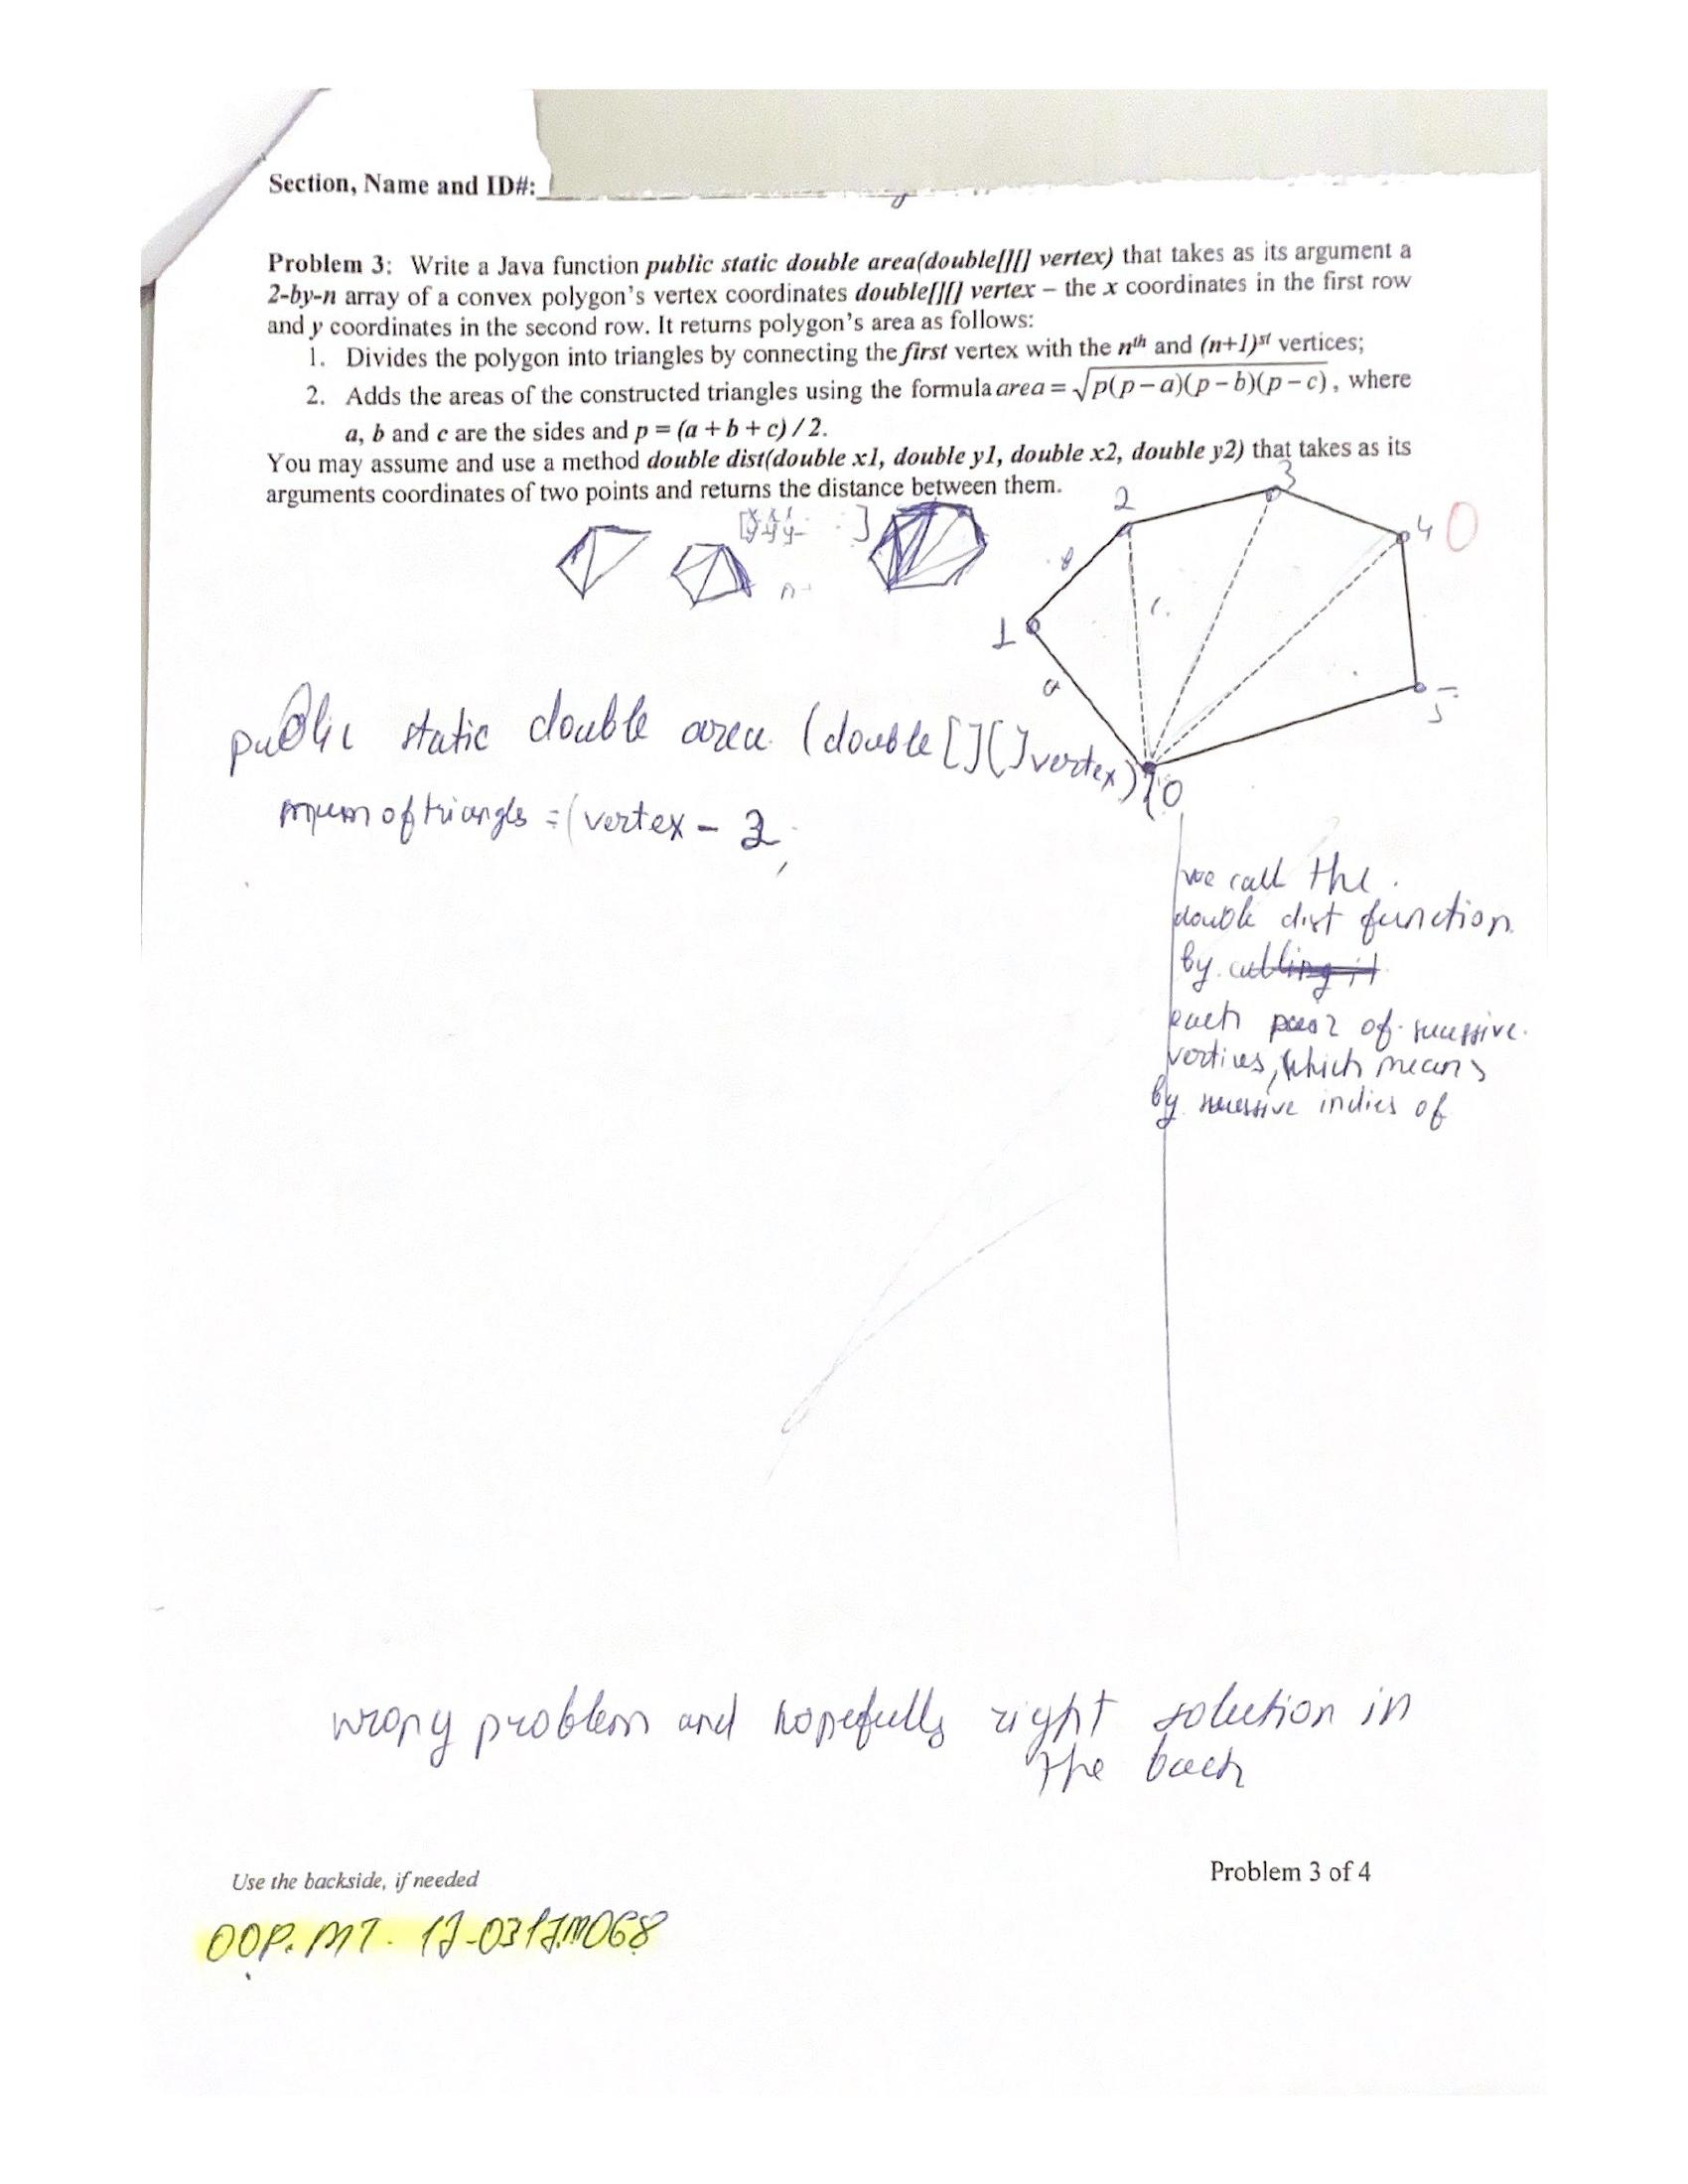 Section, Name and ID#:
Problem 3: Write a Java function public static double area(double[][] vertex) that takes as its argument a
2-by-n array of a convex polygon's vertex coordinates double[][] vertex – the x coordinates in the first row
and y coordinates in the second row. It returns polygon's area as follows:
1. Divides the polygon into triangles by connecting the first vertex with the nth and (n+1)st vertices;
2. Adds the areas of the constructed triangles using the formula area = √p(p – a)(p – b)(p – c), where
a, b and c are the sides and p = (a + b + c) / 2.
You may assume and use a method double dist(double x1, double y1, double x2, double y2) that takes as its
arguments coordinates of two points and returns the distance between them.
3
2
4 0
b
c
1
a
5
0
public static double area (double[][]vertex){
num of triangls = (vertex - 2;
we call the
double dist function
by calling it
each pair of sucessive
vertives, which means
by sucessive indies of
wrong problem and hopefully right solution in
the back
Use the backside, if needed
Problem 3 of 4
OOP. MT. 17-0317M068